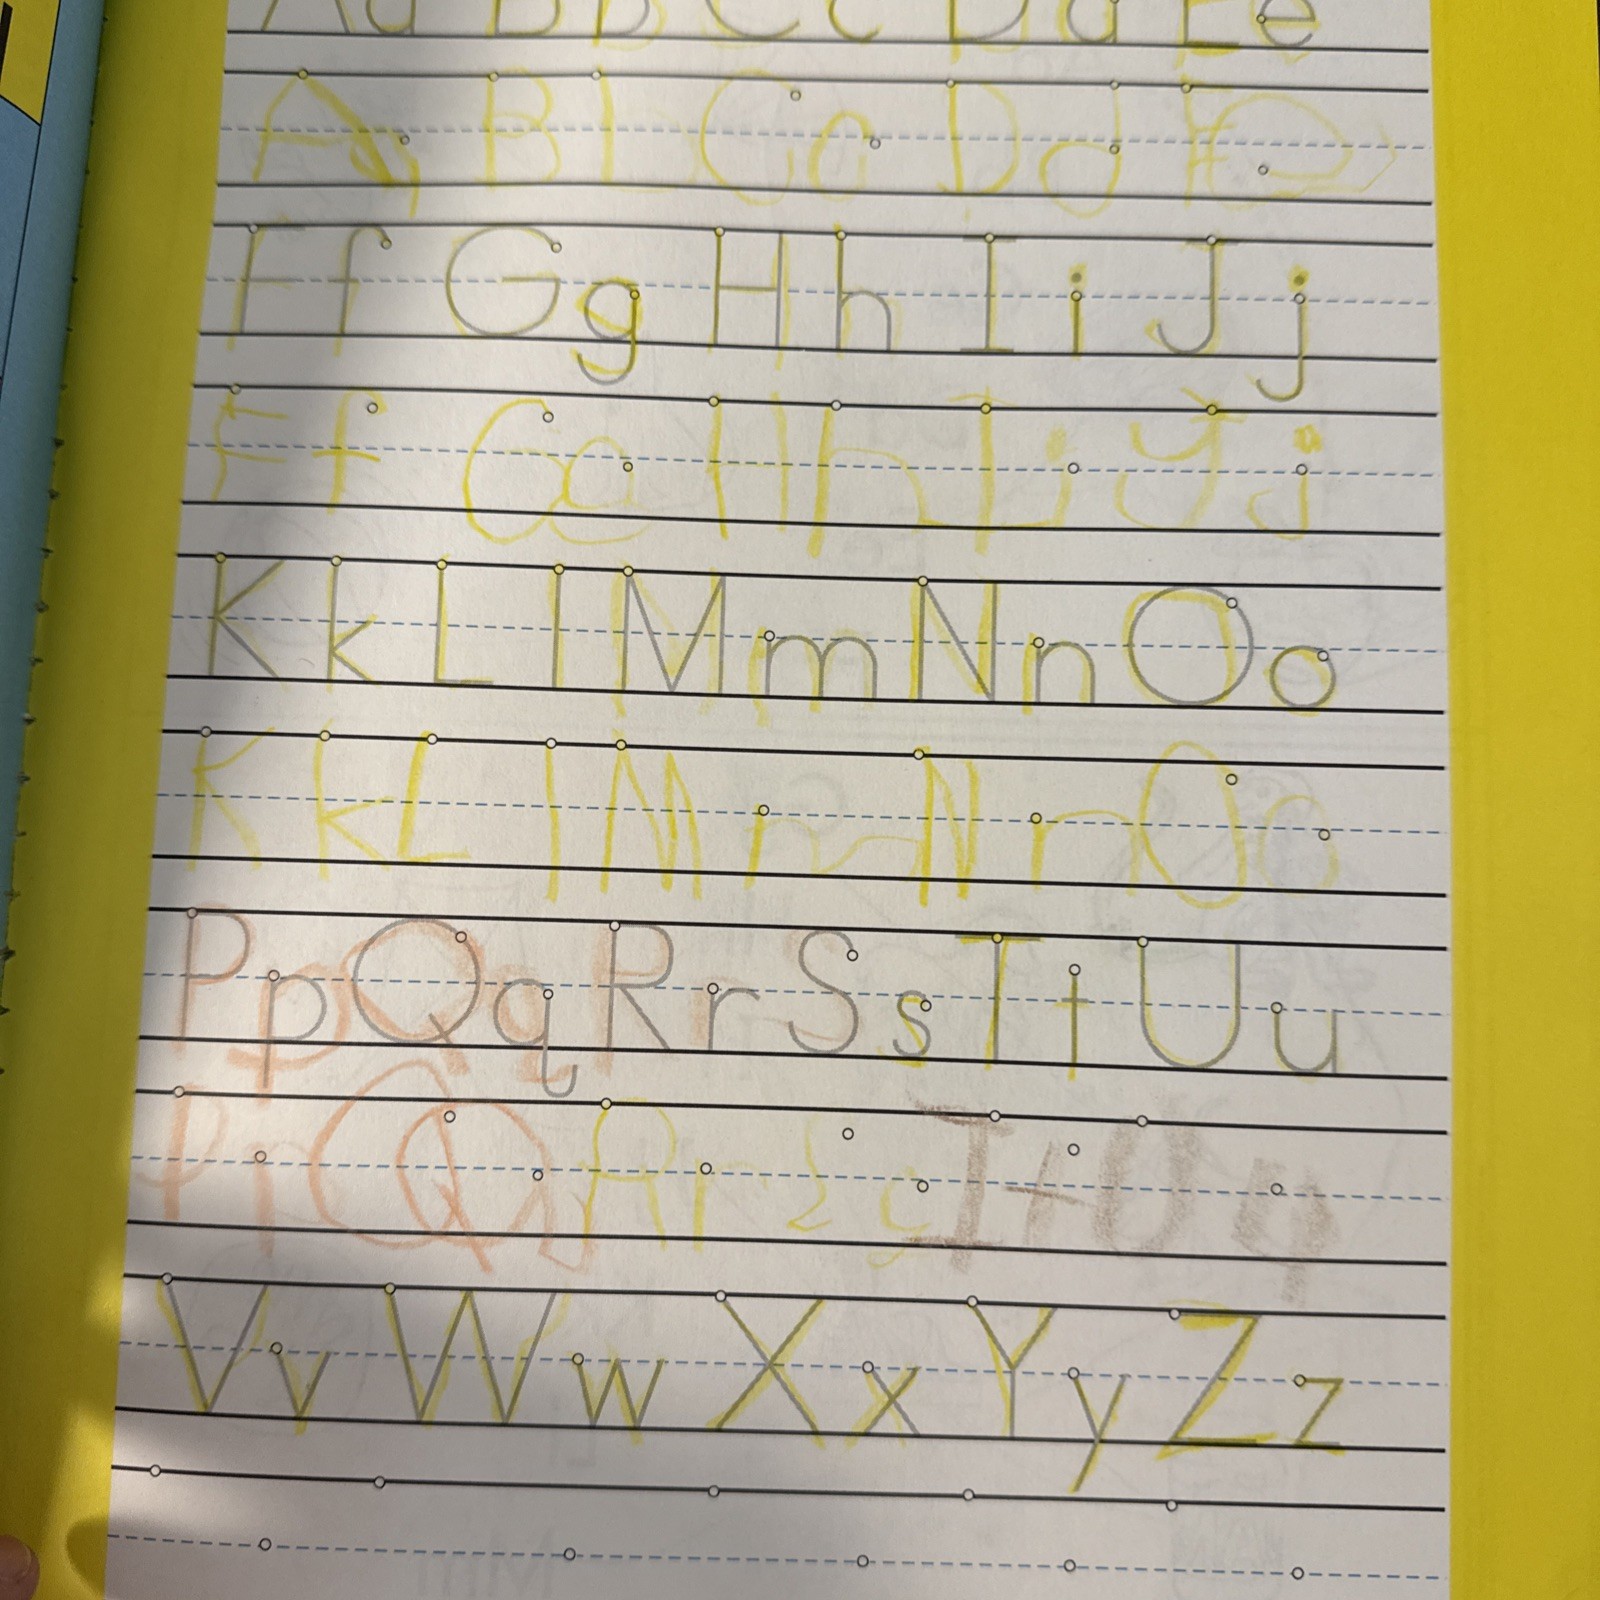 Aa Bb Cc Dd Ee
A B C c D d
Ff Gg Hh Ii Jj
Ff G H h I i J j
Kk Ll Mm Nn Oo
Kk Ll M N O o
Pp Qq Rr Ss Tt Uu
P p Q R r T t U
Vv Ww Xx Yy Zz